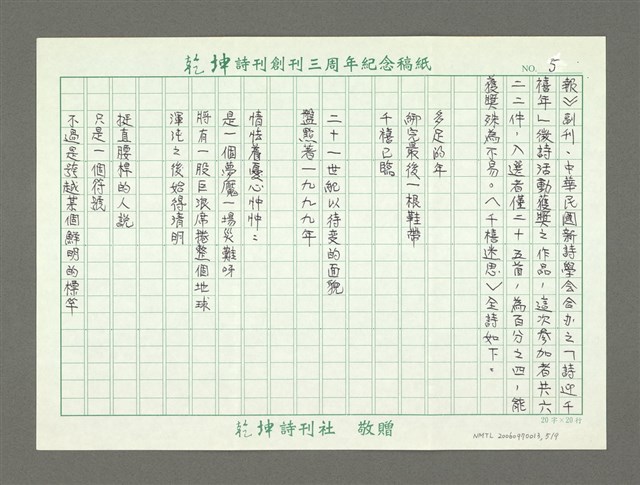 乾坤詩刊創刊三周年紀念稿紙
NO. 5
報》副刊、中華民國新詩學會合办之「詩迎千
禧年」徵詩活動獲獎之作品，這次參加者共六
二二件，入選者僅二十五首，為百分之四，能
獲獎殊為不易。〈千禧迷思〉全詩如下。
多足的年
綁完最後一根鞋帶
千禧已臨
二十一世紀以待变的面貌
盤點着一九九九年
惜怯養憂心忡忡：
是一個夢魘一場災難呀
將有一股巨浪席捲整個地球
渾沌之後始得清明
挺直腰桿的人說
只是一個符號
不過是跨越某個鮮明的標竿
20字×20行
乾坤詩刊社 敬贈
NMTL 20060970013, 5/9